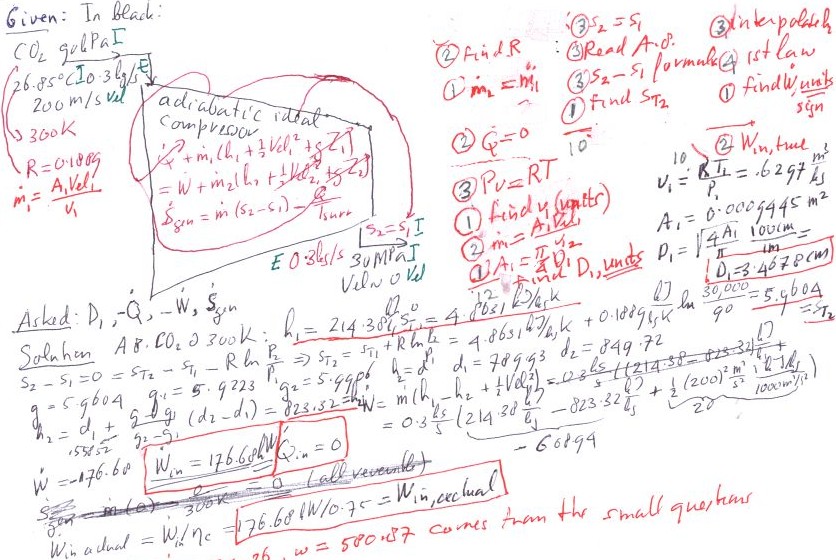 Given: In black:
CO2 90kPa I
26.85°C I 0.3kg/s E
200m/s Vel
300K
R = 0.1889
ṁ1 = A1Vel1/v1
adiabatic ideal
compressor
Q̇ + ṁ1(h1 + ½Vel1² + gZ1)
= Ẇ + ṁ2(h2 + ½Vel2² + gZ2)
Ṡgen = ṁ(s2-s1) - Q̇/Tsurr
s2 = s1 I
E 0.3kg/s
30MPa I
Vel ~ 0 Vel
② find R
① ṁ2 = ṁ1
② Q̇ = 0
③ Pv = RT
① find v1 (units)
② ṁ = A1Vel1/v1
① A1 = π/4 D1²
find D1, units
③ s2 = s1
③ Read A.8.
③ s2 - s1 formula
① find ST2
10
③ interpolate
④ 1st law
① find Ẇ, units
sign
② Win, true
10
v1 = RT1/P1 = .6297 m³/kg
A1 = 0.0009445 m²
D1 = √(4A1/π) 100cm/1m =
D1 = 3.4678 cm
Asked: D1, -Q̇, -Ẇ, Ṡgen
Solution A8.CO2 @ 300K: h1 = 214.38 kJ/kg ST1 = 4.8631 kJ/kg K
12
s2 - s1 = 0 = ST2 - ST1 - R ln P2/P1 ⇒ ST2 = ST1 + R ln P2/P1 = 4.8631 kJ/kg K + 0.1889 kJ/kg K ln 30,000/90 = 5.9604 = ST2
g = 5.9604 g1 = 5.9223 g2 = 5.9996 h2 = d d1 = 789.93 d2 = 849.72
h2 = d1 + (g-g1)/(g2-g1) (d2-d1) = 823.32 = h2
Ẇ = ṁ(h1 - h2 + ½Vel1²) = 0.3 kg/s ((214.38 - 823.32) kJ/kg +
= 0.3 kg/s (214.38 kJ/kg - 823.32 kJ/kg + ½(200)² m²/s² 1 kJ/kg / 1000m²/s²)
-608.94
20
Ẇ = -176.68
Ẇin = 176.68kW
Q̇in = 0
Ṡgen = ṁ(0) - 0/300K = 0 (all reversible)
Win actual = Win/ηc = 176.68kW/0.75 = Win, actual
w = 580.87 comes from the small questions